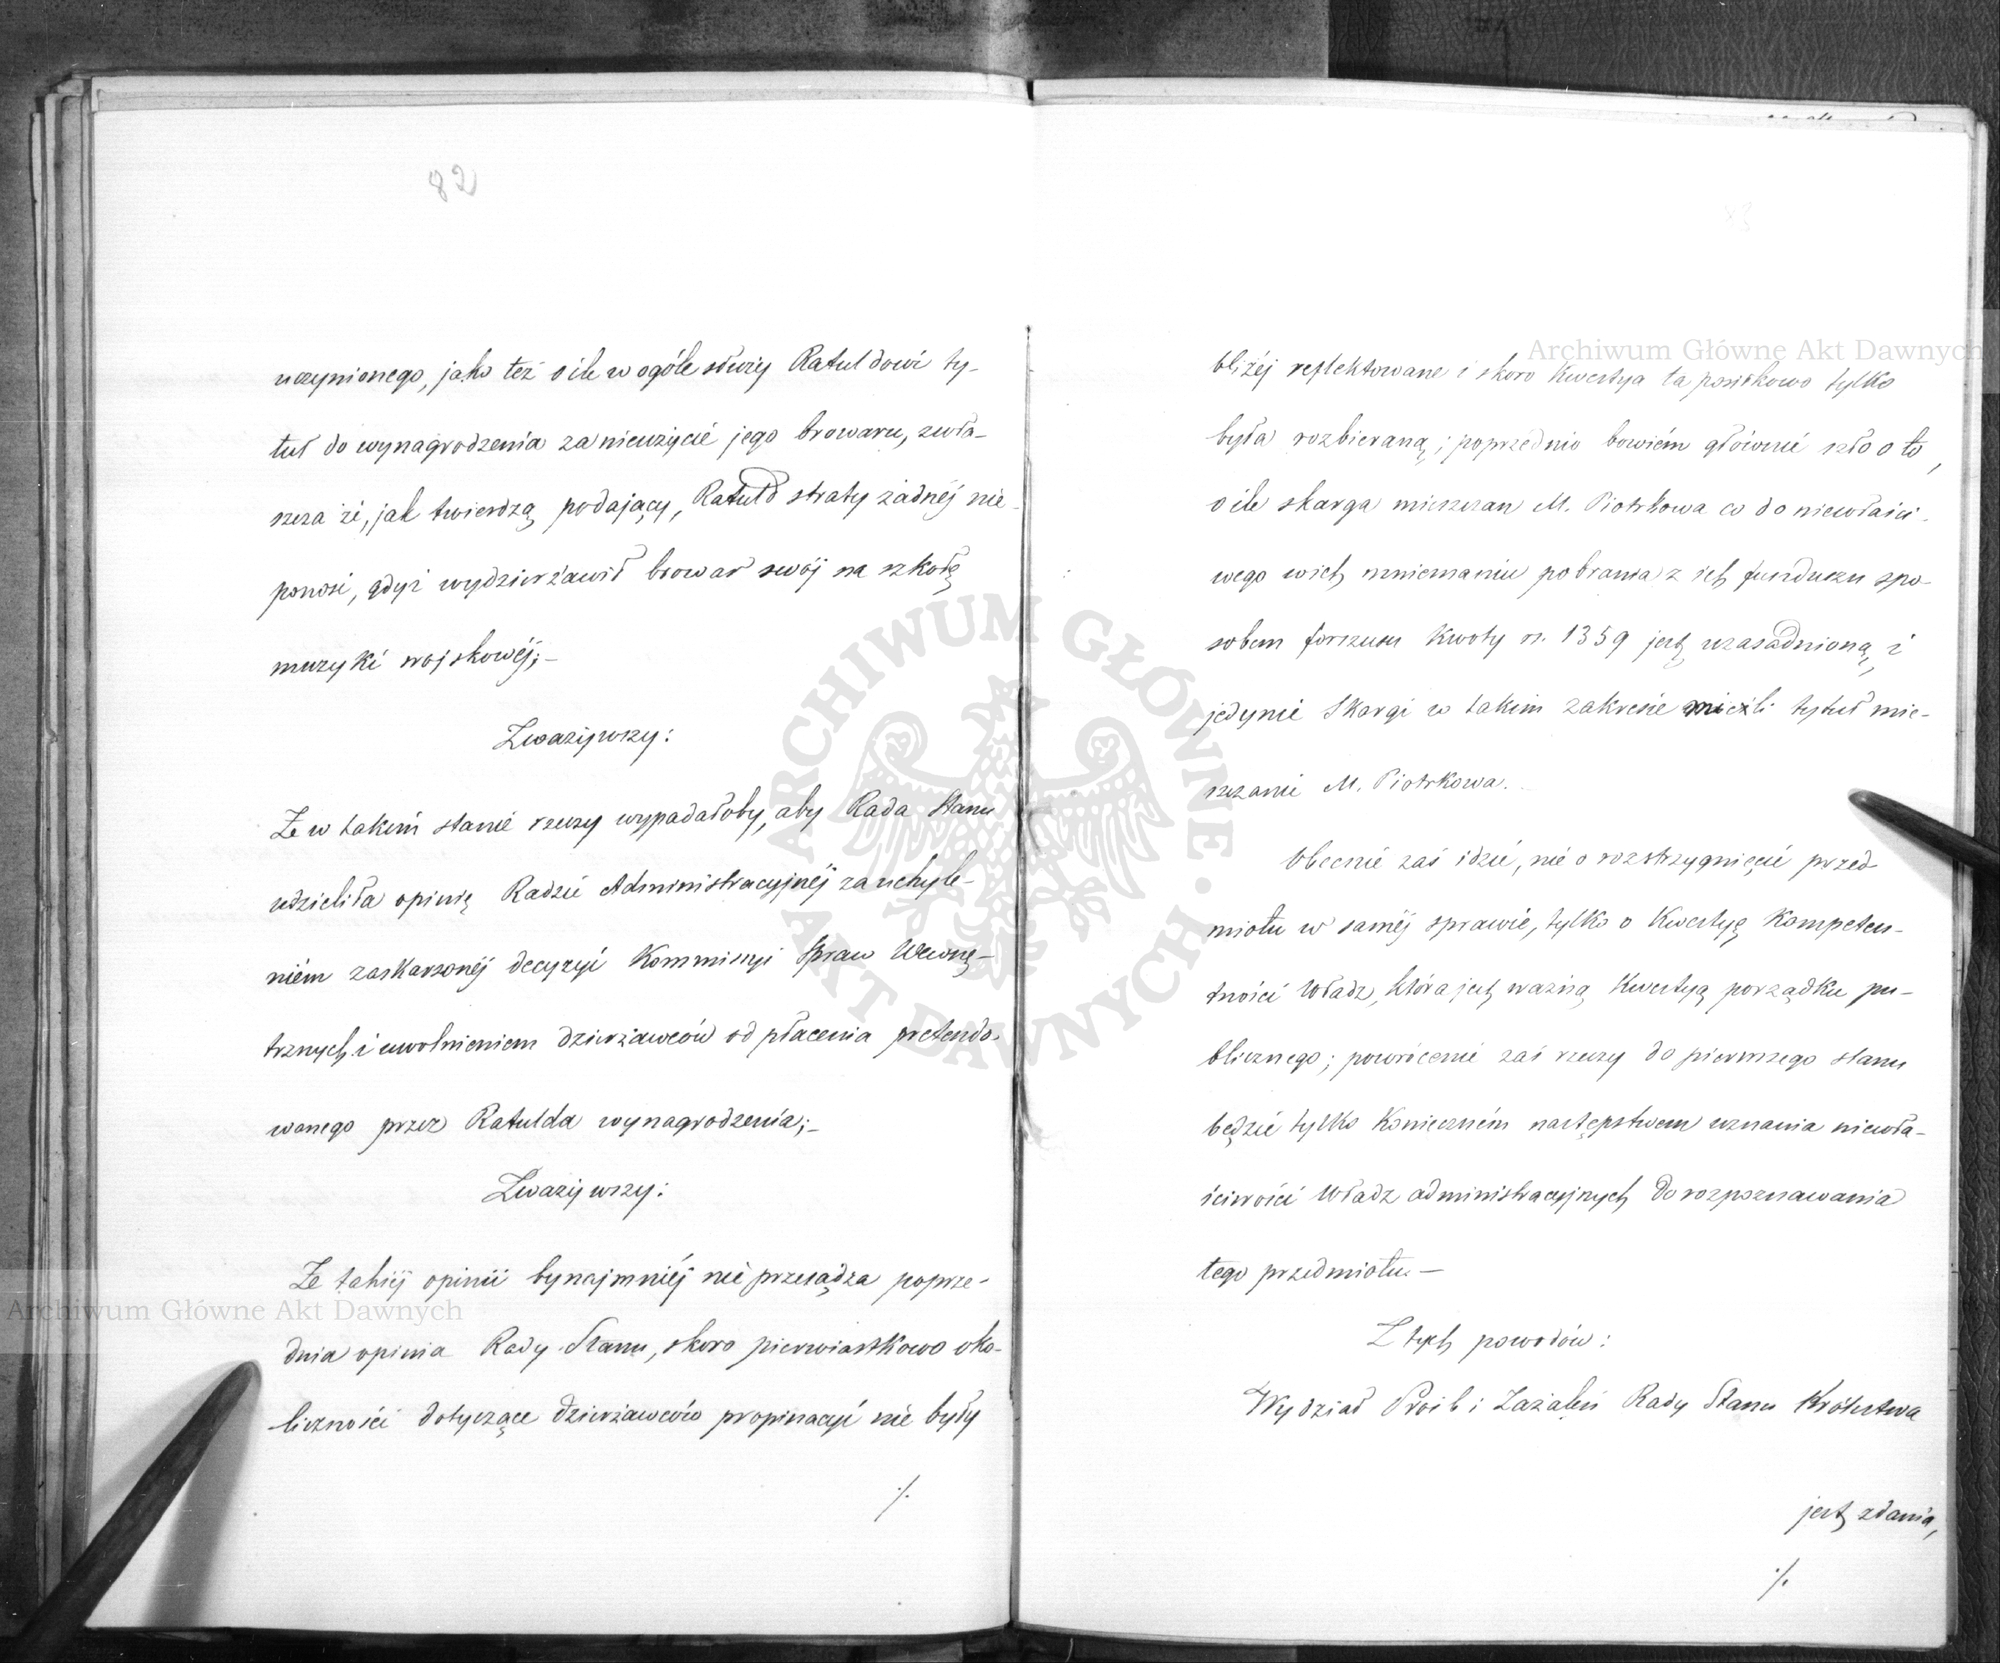 82
uczynionego, jako też o ile w ogóle służy Ratuldowi ty-
tuł do wynagrodzenia za nieużycie jego browaru, zwła-
szcza że, jak twierdzą podający, Ratuld straty żadnéj nie
ponosi, gdyż wydzierżawił browar swój na szkołę
muzyki wojskowéj;—
Zważywszy:
Że w takim stanie rzeczy wypadałoby, aby Rada Stanu
udzieliła opinię Radzie Administracyjnéj za uchyle-
niém zaskarżonéj decyzyi Kommissyi Spraw Wewnę-
trznych i uwolnieniem dzierżawców od płacenia pretendo-
wanego przez Ratulda wynagrodzenia;—
Zważywszy:
Że takiéj opinii bynajmniéj nie przesądza poprze-
dnia opinia Rady Stanu, skoro pierwiastkowo oko-
liczności dotyczące dzierżawców propinacyi nie były
./.
83
bliżéj reflektowane i skoro kwestya ta posiłkowo tylko
była rozbieraną; poprzednio bowiém głównie szło o to,
o ile skarga mieszczan M. Piotrkowa co do niewłaści-
wego w ich mniemaniu pobrania z ich funduszu spo-
sobem forszusu kwoty rs. 1359 jest uzasadnioną, i
jedynie skargi w takim zakresie mieli tytuł mie-
szczanie M. Piotrkowa.
Obecnie zaś idzie, nie o rozstrzygnięcie przed-
miotu w saméj sprawie, tylko o kwestyę kompeten-
tności Władz, która jest ważną kwestyą porządku pu-
blicznego; powrócenie zaś rzeczy do pierwszego stanu
będzie tylko konieczném następstwem uznania niewła-
ściwości Władz administracyjnych do rozpoznawania
tego przedmiotu.—
Z tych powodów:
Wydział Próśb i Zażaleń Rady Stanu Królestwa
jest zdania,
./.
Archiwum Główne Akt Dawnych
Archiwum Główne Akt Dawnych
ARCHIWUM GŁÓWNE · AKT DAWNYCH ·